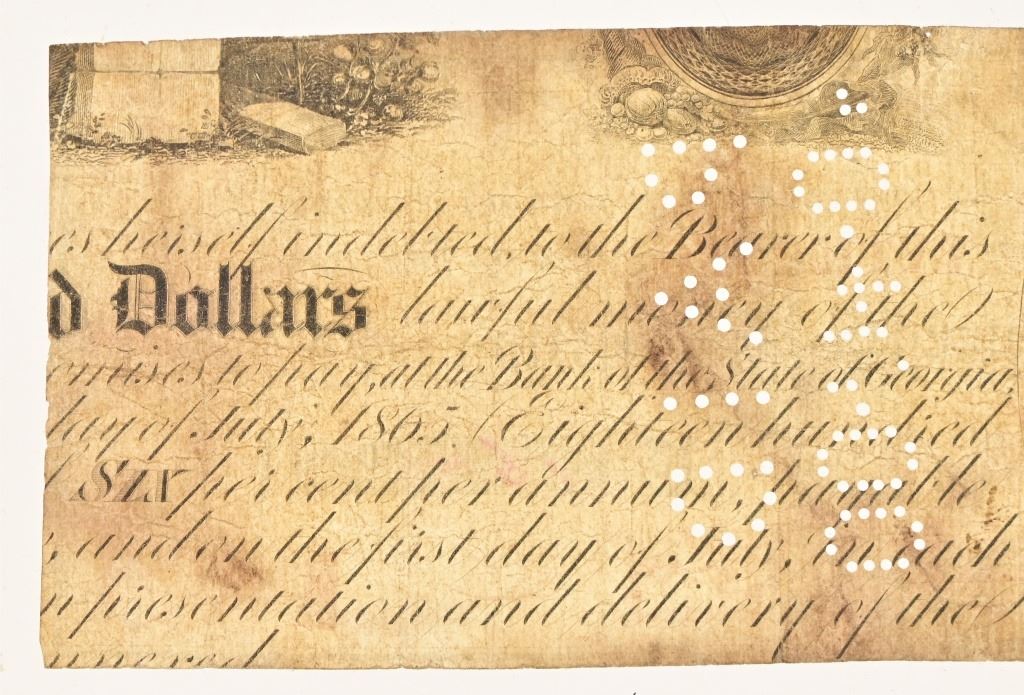 es heiself indebted, to the Bearer of this
d Dollars lawful money of the
omises to pay, at the Bank of the State of Georgia,
day of July, 1865 (Eighteen hundred
SIX per cent per annum, payable
, and on the first day of July, in each
n presentation and delivery of the